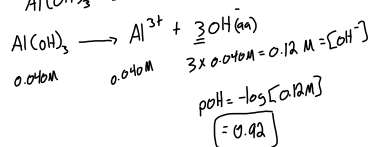 Al(OH)₃
Al(OH)₃ ⟶ Al³⁺ + 3OH⁻(aq)
0.040M 0.040M 3 x 0.040M = 0.12 M = [OH⁻]
pOH = -log[0.12M]
= 0.92